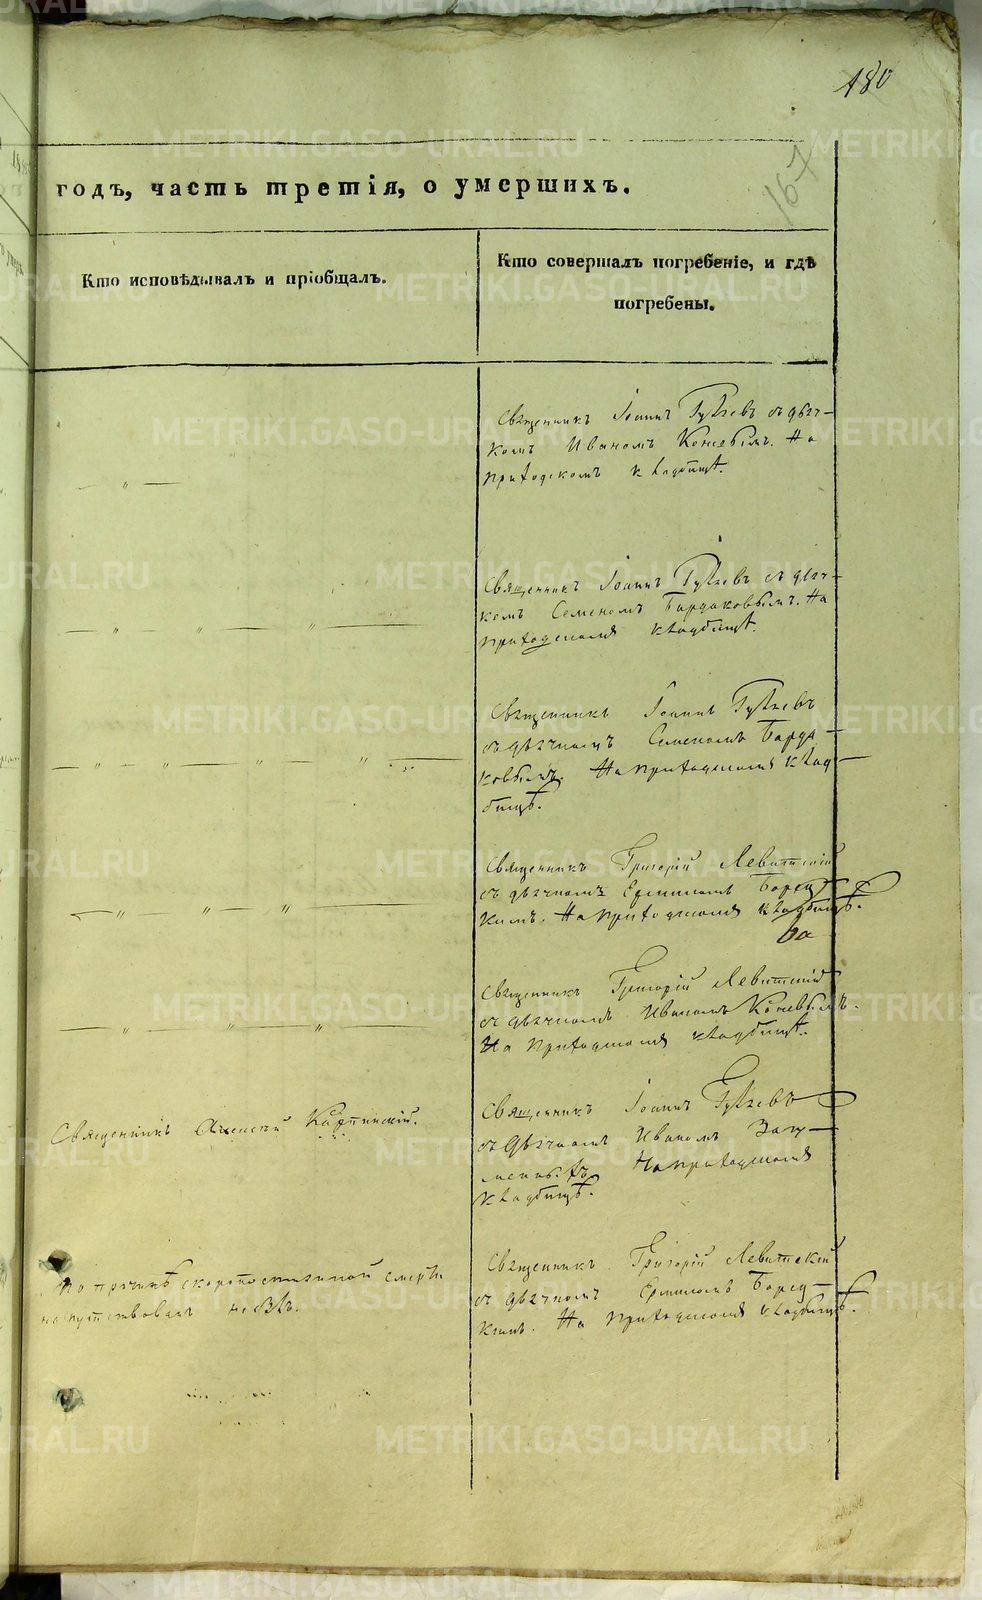 180
167
годъ, часть третія, о умершихъ.
Кто исповѣдывалъ и пріобщалъ.
Кто совершалъ погребеніе, и гдѣ
погребены.
Священникъ Іоаннъ с дьяч-
комъ Иваномъ Коневымъ. На
приходскомъ кладбищѣ.
Священникъ Іоаннъ съ дьяч-
комъ Семеномъ Бардаковымъ. На
приходскомъ кладбищѣ.
Священникъ Іоаннъ
съ дьячкомъ Семеномъ Барда-
ковымъ. На приходскомъ клад-
бищѣ.
Священникъ Григорій Левитскій
съ дьячкомъ
кимъ. На приходскомъ кладбищѣ.
Священникъ Григорій Левитскій
съ дьячкомъ Иваномъ Коневымъ.
На приходскомъ кладбищѣ.
Священникъ Карпинскій.
Священникъ Іоаннъ
съ дьячкомъ Иваномъ
На приходскомъ
кладбищѣ.
По причинѣ скоропостижной смерти
напутствованъ не былъ.
Священникъ Григорій Левитскій
съ дьячкомъ
кимъ. На приходскомъ кладбищѣ.
METRIKI.GASO-URAL.RU